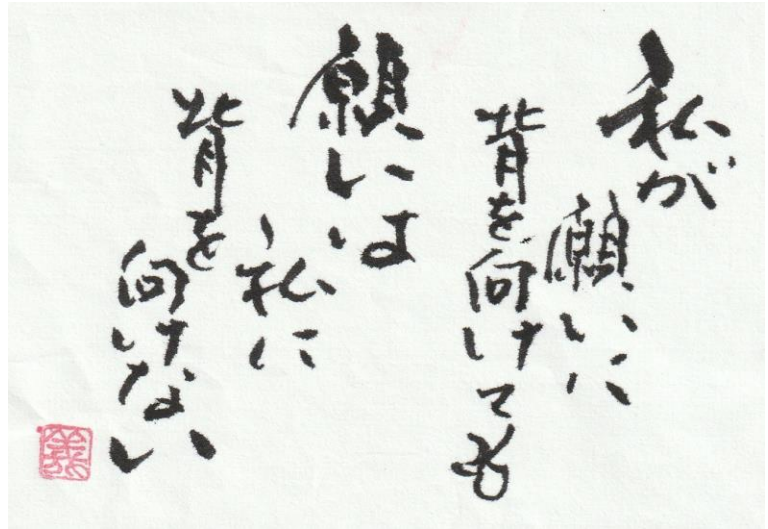 私が
願いに
背を向けても
願いは
私に
背を
向けない